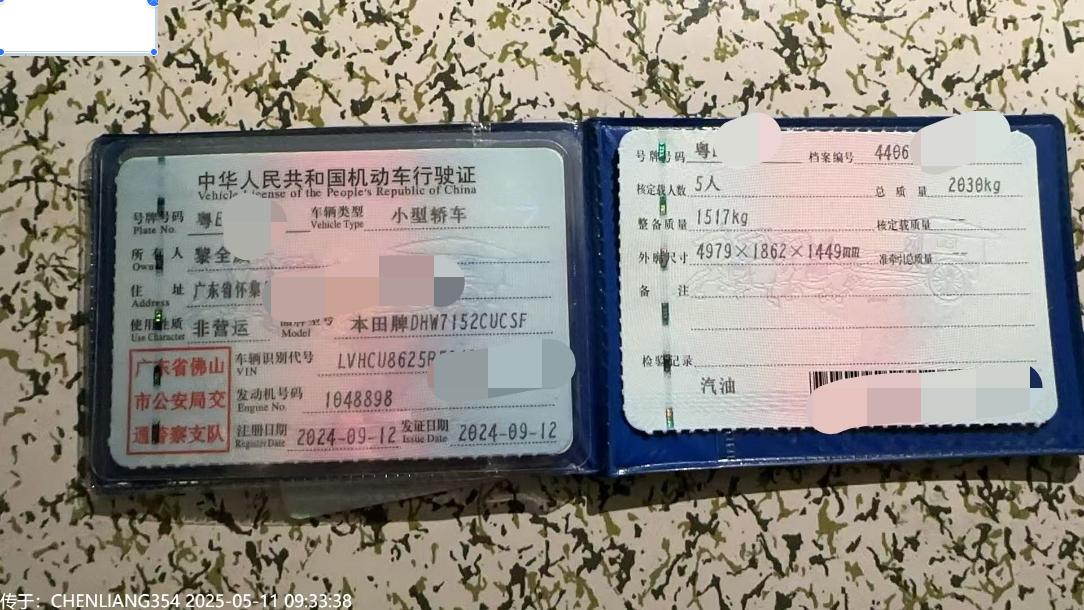 中华人民共和国机动车行驶证
Vehicle License of the People's Republic of China
号牌号码 粤 车辆类型 小型轿车
Plate No. Vehicle Type
所有人 黎全
Owner
住址 广东省怀集
Address
使用性质 非营运 品牌型号 本田牌DHW7152CUCSF
Use Character Model
广东省佛山
市公安局交
通警察支队
车辆识别代号 LVHCU8625R
VIN
发动机号码 1048898
Engine No.
注册日期 2024-09-12 发证日期 2024-09-12
Register Date Issue Date
号牌号码 粤 档案编号 4406
核定载人数 5人 总质量 2030kg
整备质量 1517kg 核定载质量 —
外廓尺寸 4979×1862×1449mm 准牵引总质量 —
备注
检验记录
汽油
传于：CHENLIANG354 2025-05-11 09:33:38